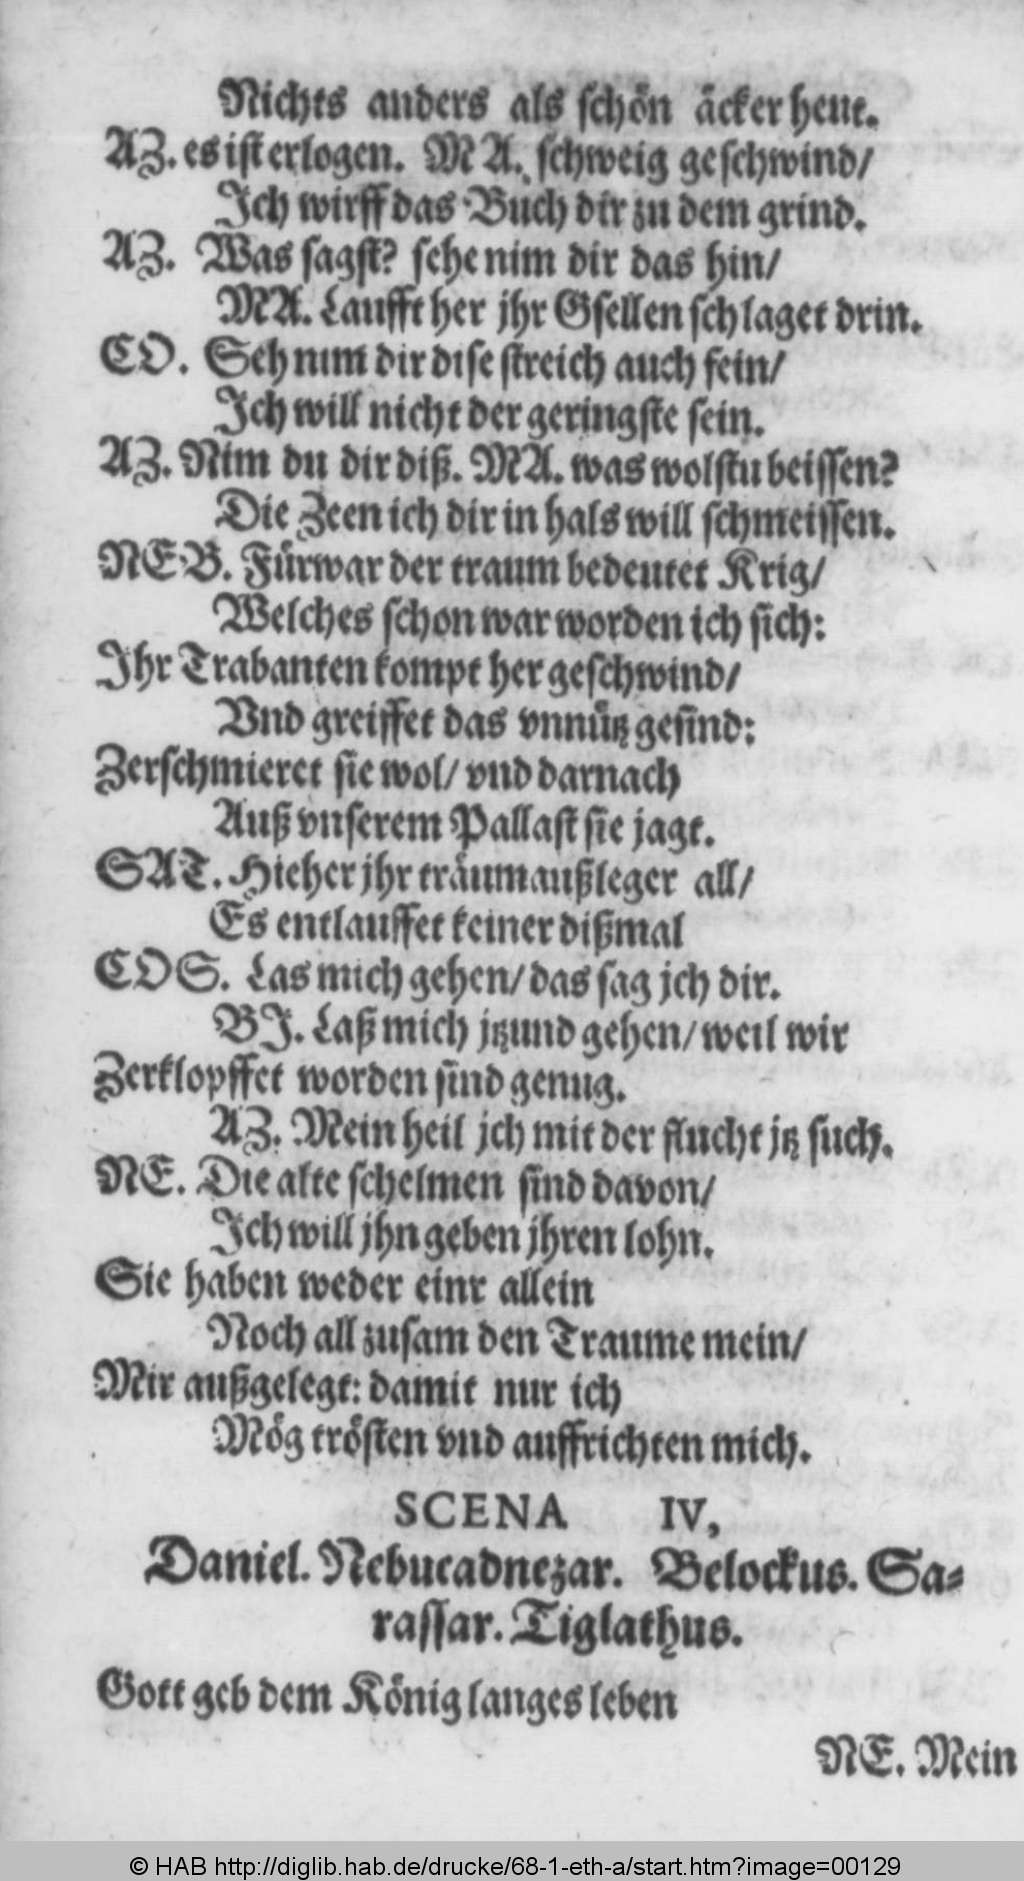 Nichts anders als schön äcker heut.
AZ. es ist erlogen. MA. schweig geschwind/
Ich wirff das Buch dir zu dem grind.
AZ. Was sagst? sehe nim dir das hin/
MA. Laufft her jhr Gsellen schlaget drin.
CO. Seh nim dir dise streich auch fein/
Ich will nicht der geringste sein.
AZ. Nim du dir diß. MA. was wolstu beissen?
Die Zeen ich dir in hals will schmeissen.
NEB. Fürwar der traum bedeutet Krig/
Welches schon war worden ich sich:
Ihr Trabanten kompt her geschwind/
Vnd greiffet das vnnütz gesind:
Zerschmieret sie wol/ vnd darnach
Auß vnserem Pallast sie jagt.
SAT. Hieher jhr träumaußleger all/
Es entlauffet keiner dißmal
COS. Las mich gehen/ das sag jch dir.
BI. Laß mich jtzund gehen/ weil wir
Zerklopffet worden sind genug.
AZ. Mein heil jch mit der flucht jtz such.
NE. Die alte schelmen sind davon/
Ich will jhn geben jhren lohn.
Sie haben weder einr allein
Noch all zusam den Traume mein/
Mir außgelegt: damit nur ich
Mög trösten vnd auffrichten mich.
SCENA IV,
Daniel. Nebucadnezar. Belockus. Sa-
rassar. Tiglathus.
Gott geb dem König langes leben
NE. Mein
© HAB http://diglib.hab.de/drucke/68-1-eth-a/start.htm?image=00129